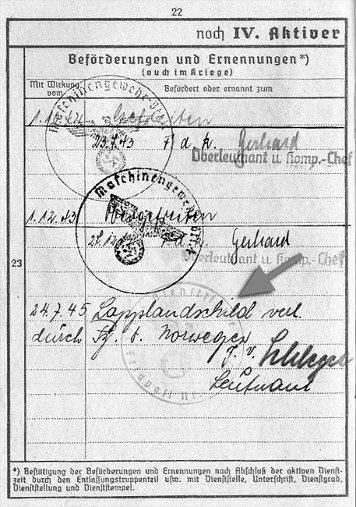 22
noch IV. Aktiver
Beförderungen und Ernennungen*)
(auch im Kriege)
Mit Wirkung vom
Befördert oder ernannt zum
Gefreiten
23.7.43 F. d. R. Gerhard
Oberleutnant u. Komp.-Chef
Maschinengewehr
1.12.43 Obergefreiten
F. d. R. Gerhard
Oberleutnant u. Komp.-Chef
23
24.7.45 Lapplandschild verl.
durch Norwegen
J. V.
Leutnant
*) Bestätigung der Beförderungen und Ernennungen nach Abschluß der aktiven Dienst-
zeit durch den Entlassungstruppenteil usw. mit Dienststelle, Unterschrift, Dienstgrad,
Dienststellung und Dienststempel.